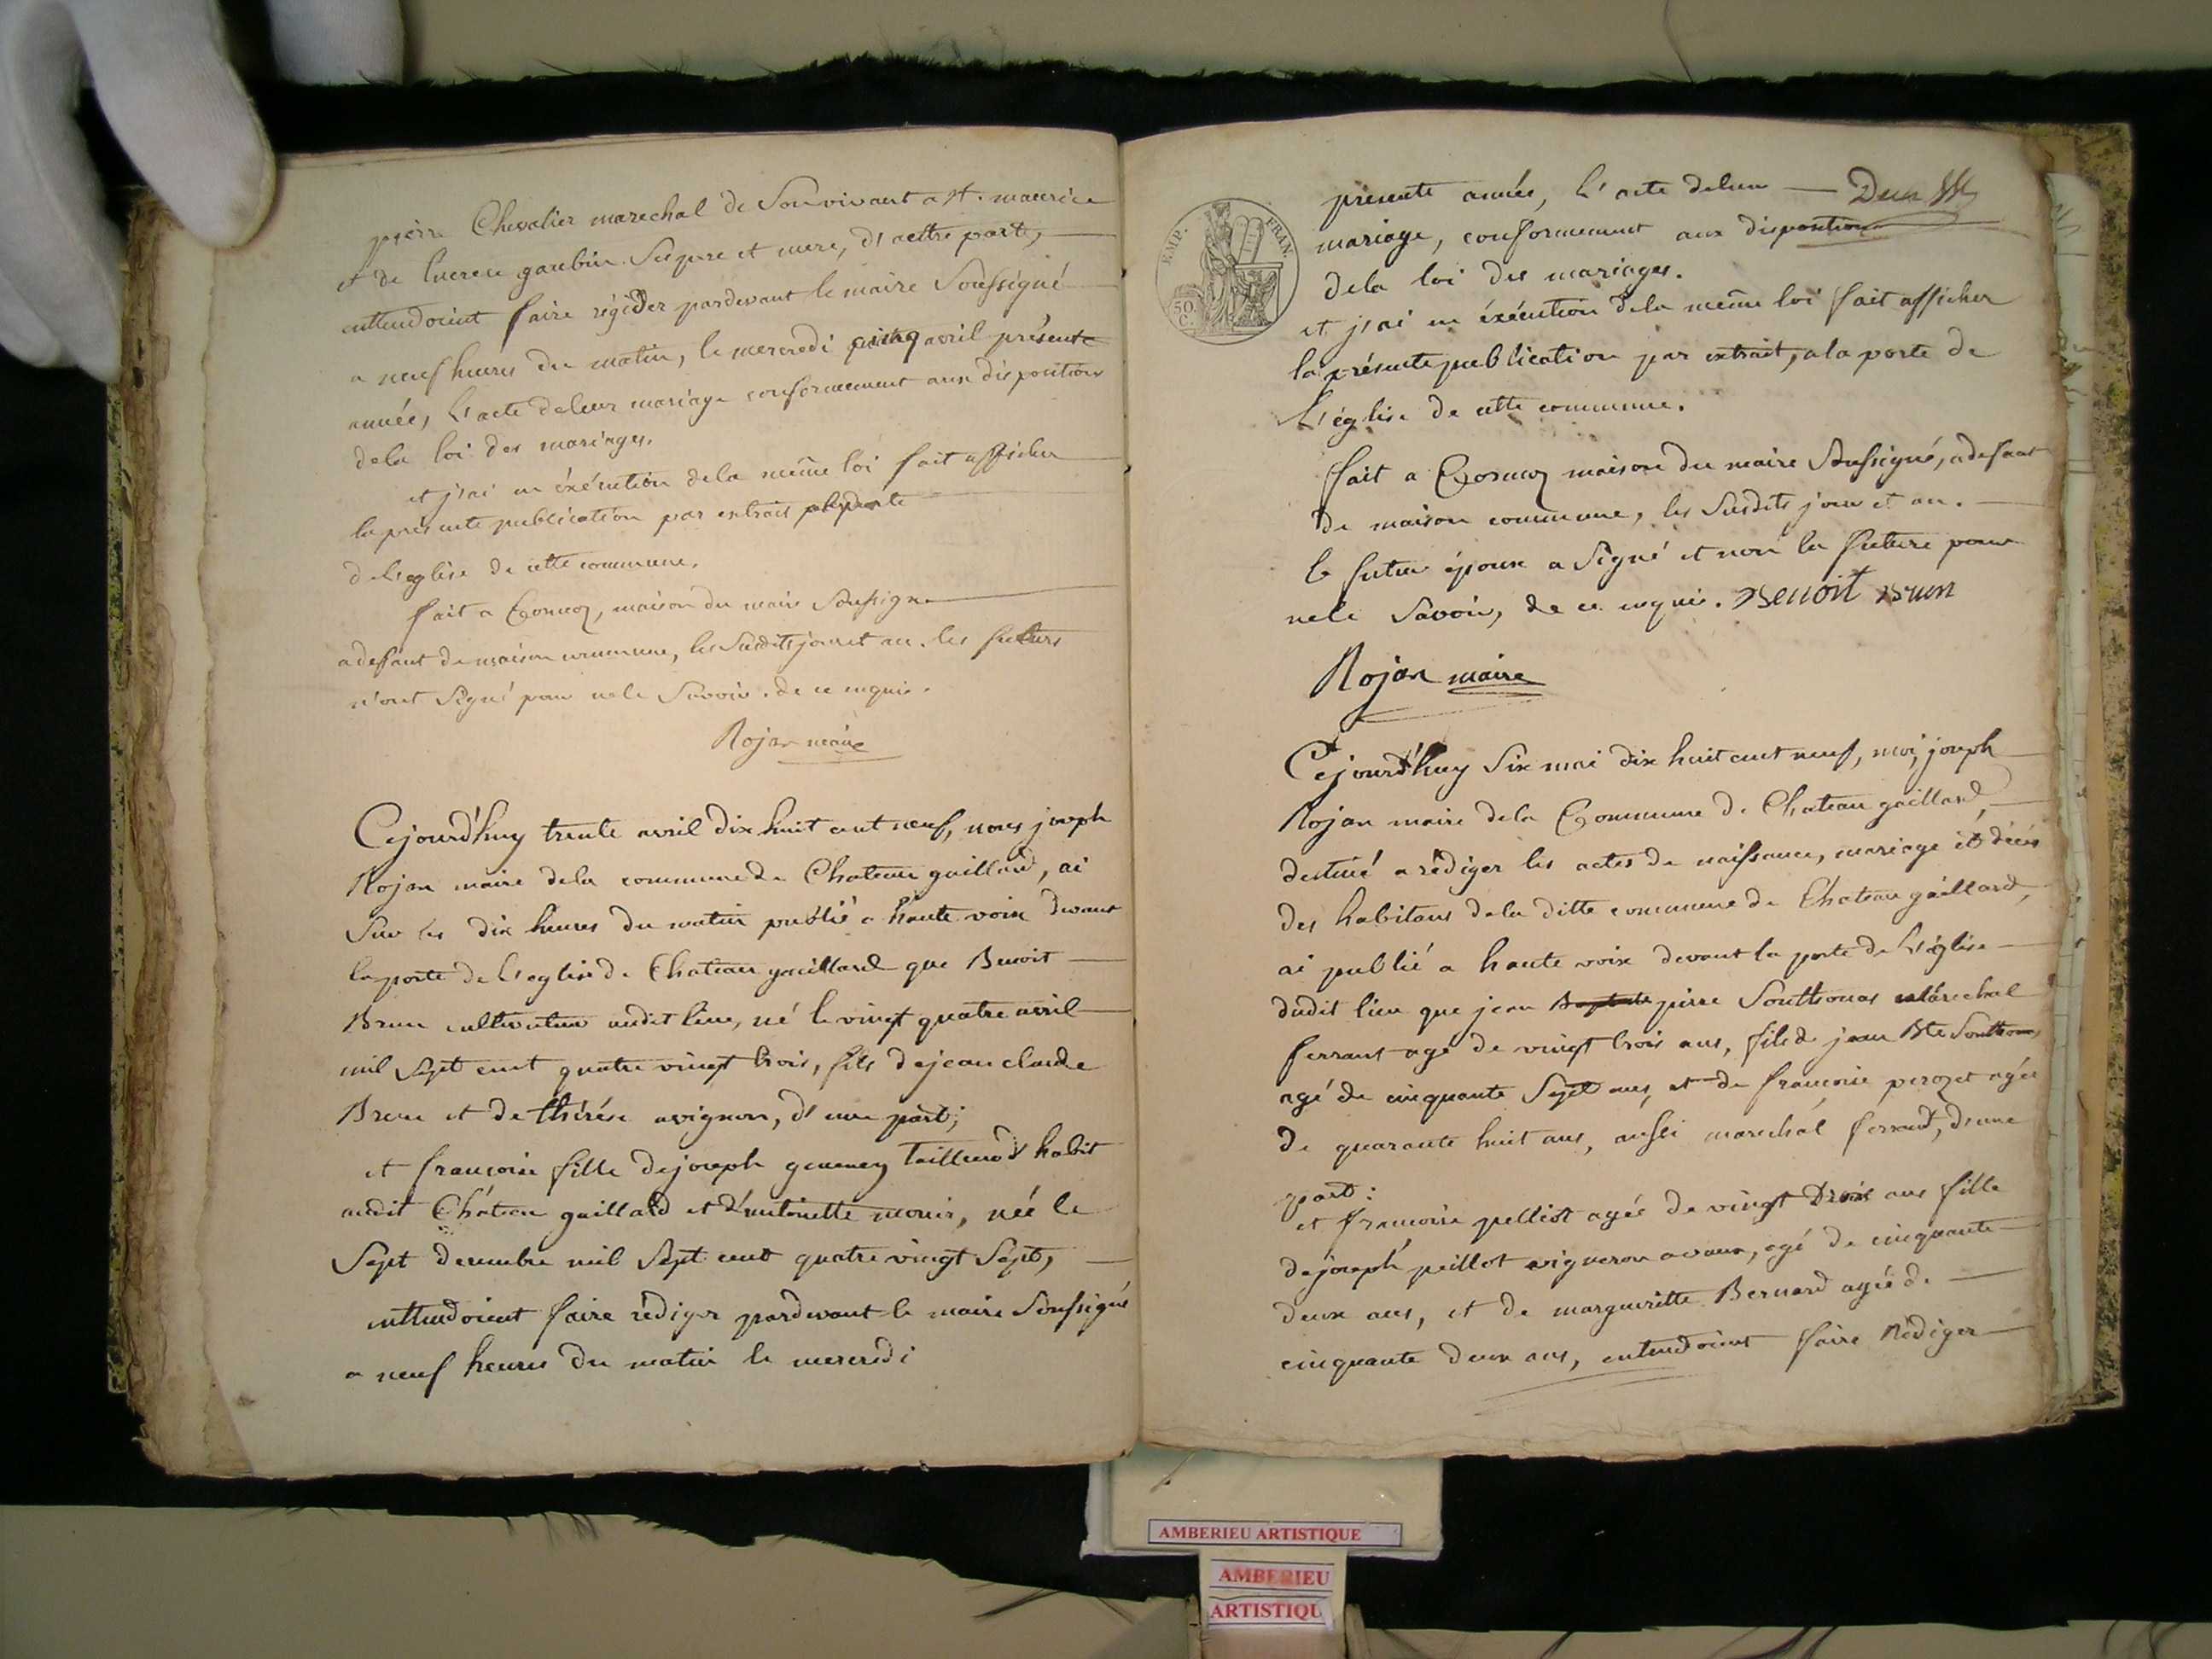 pierre Chevalier marechal de Son vivant a St. maurice
et de lucrece gaubin. Ses pere et mere, d'aultre part,
enttendoient faire régider pardevant le maire Soussigné
a neuf heures du matin, le mercredi avril présente
année, L'acte deleur mariage conformement aux disposition
dela loi des mariages.
et j'ai en éxécution dela même loi fait afficher
la presente publication par extrait
de L'eglise de cette commune.
fait a Cormoz, maison du maire Soussigné
adeffaut de maison commune, les Susdits jour et an. les futurs
n'ont Signé pour nele Savoir. de ce enquis.
Rojan maire
Cejourd'huy trente avril dix huit cent neuf, nous joseph
Rojan maire dela commune de Chateau gaillard, ai
Sur les dix heures du matin publié a haute voix devant
la porte de L'eglise de Chateau gaillard que Benoit
Brun cultivateur audit lieu, né le vingt quatre avril
mil Sept cent quatre vingt trois, fils dejean claude
Brun et de thérése avignon, d'une part;
et francoise fille dejoseph gueney tailleur d'habit
audit Château gaillard et d'antoinette monin, née le
Sept decembre mil Sept cent quatre vingt Sept,
enttendoient faire rédiger pardevant le maire Soussigné
a neuf heures du matin le mercredi
EMP. FRAN.
50 C.
présente année, L'acte deleur
mariage, conformement aux disposition
dela loi des mariages.
et j'ai en éxécution dela même loi fait afficher
la présente publication par extrait, a la porte de
L'église de cette commune.
fait a Cormoz maison du maire Soussigné, adefaut
de maison commune, les Susdits jour et an.
le futur époux a Signé et non la future pour
nele Savoir, de ce enquis. Benoit Brun
Rojan maire
Cejourd'huy Six mai dix huit cent neuf, moi, joseph
Rojan maire dela Commune de Chateau gaillard,
destiné a rédiger les actes de naissance, mariage et décès
des habitans dela ditte commune de Chateau gaillard,
ai publié a haute voix devant la porte de L'église
dudit lieu que jean Baptiste pierre Southonas maréchal
ferrant agé de vingt trois ans, fils de jean Bte Southonas
agé de cinquante Sept ans, et de francoise perozet agée
de quarante huit ans, aussi marechal ferrand, d'une
part:
et francoise pelliot agée de vingt trois ans fille
dejoseph peillot vigneron a vaux, agé de cinquante
deux ans, et de margueritte Bernard agée de
cinquante deux ans, entendoient faire Rédiger
AMBERIEU ARTISTIQUE
AMBERIEU
ARTISTIQU